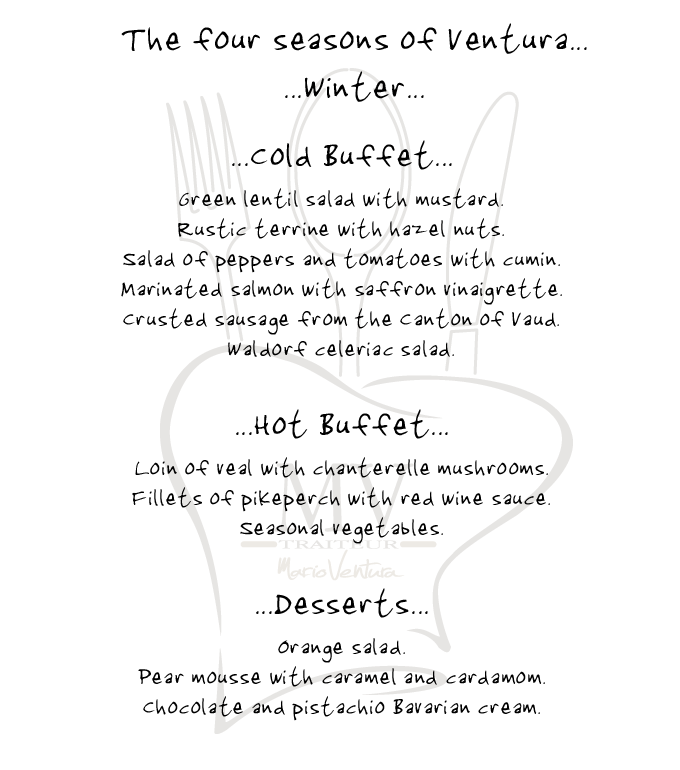 The four seasons of Ventura...
...Winter...
...Cold Buffet...
Green lentil salad with mustard.
Rustic terrine with hazel nuts.
Salad of peppers and tomatoes with cumin.
Marinated salmon with saffron vinaigrette.
Crusted sausage from the Canton of Vaud.
Waldorf celeriac salad.
...Hot Buffet...
Loin of veal with chanterelle mushrooms.
Fillets of pikeperch with red wine sauce.
Seasonal vegetables.
MV
TRAITEUR
Mario Ventura
...Desserts...
Orange salad.
Pear mousse with caramel and cardamom.
Chocolate and pistachio Bavarian cream.